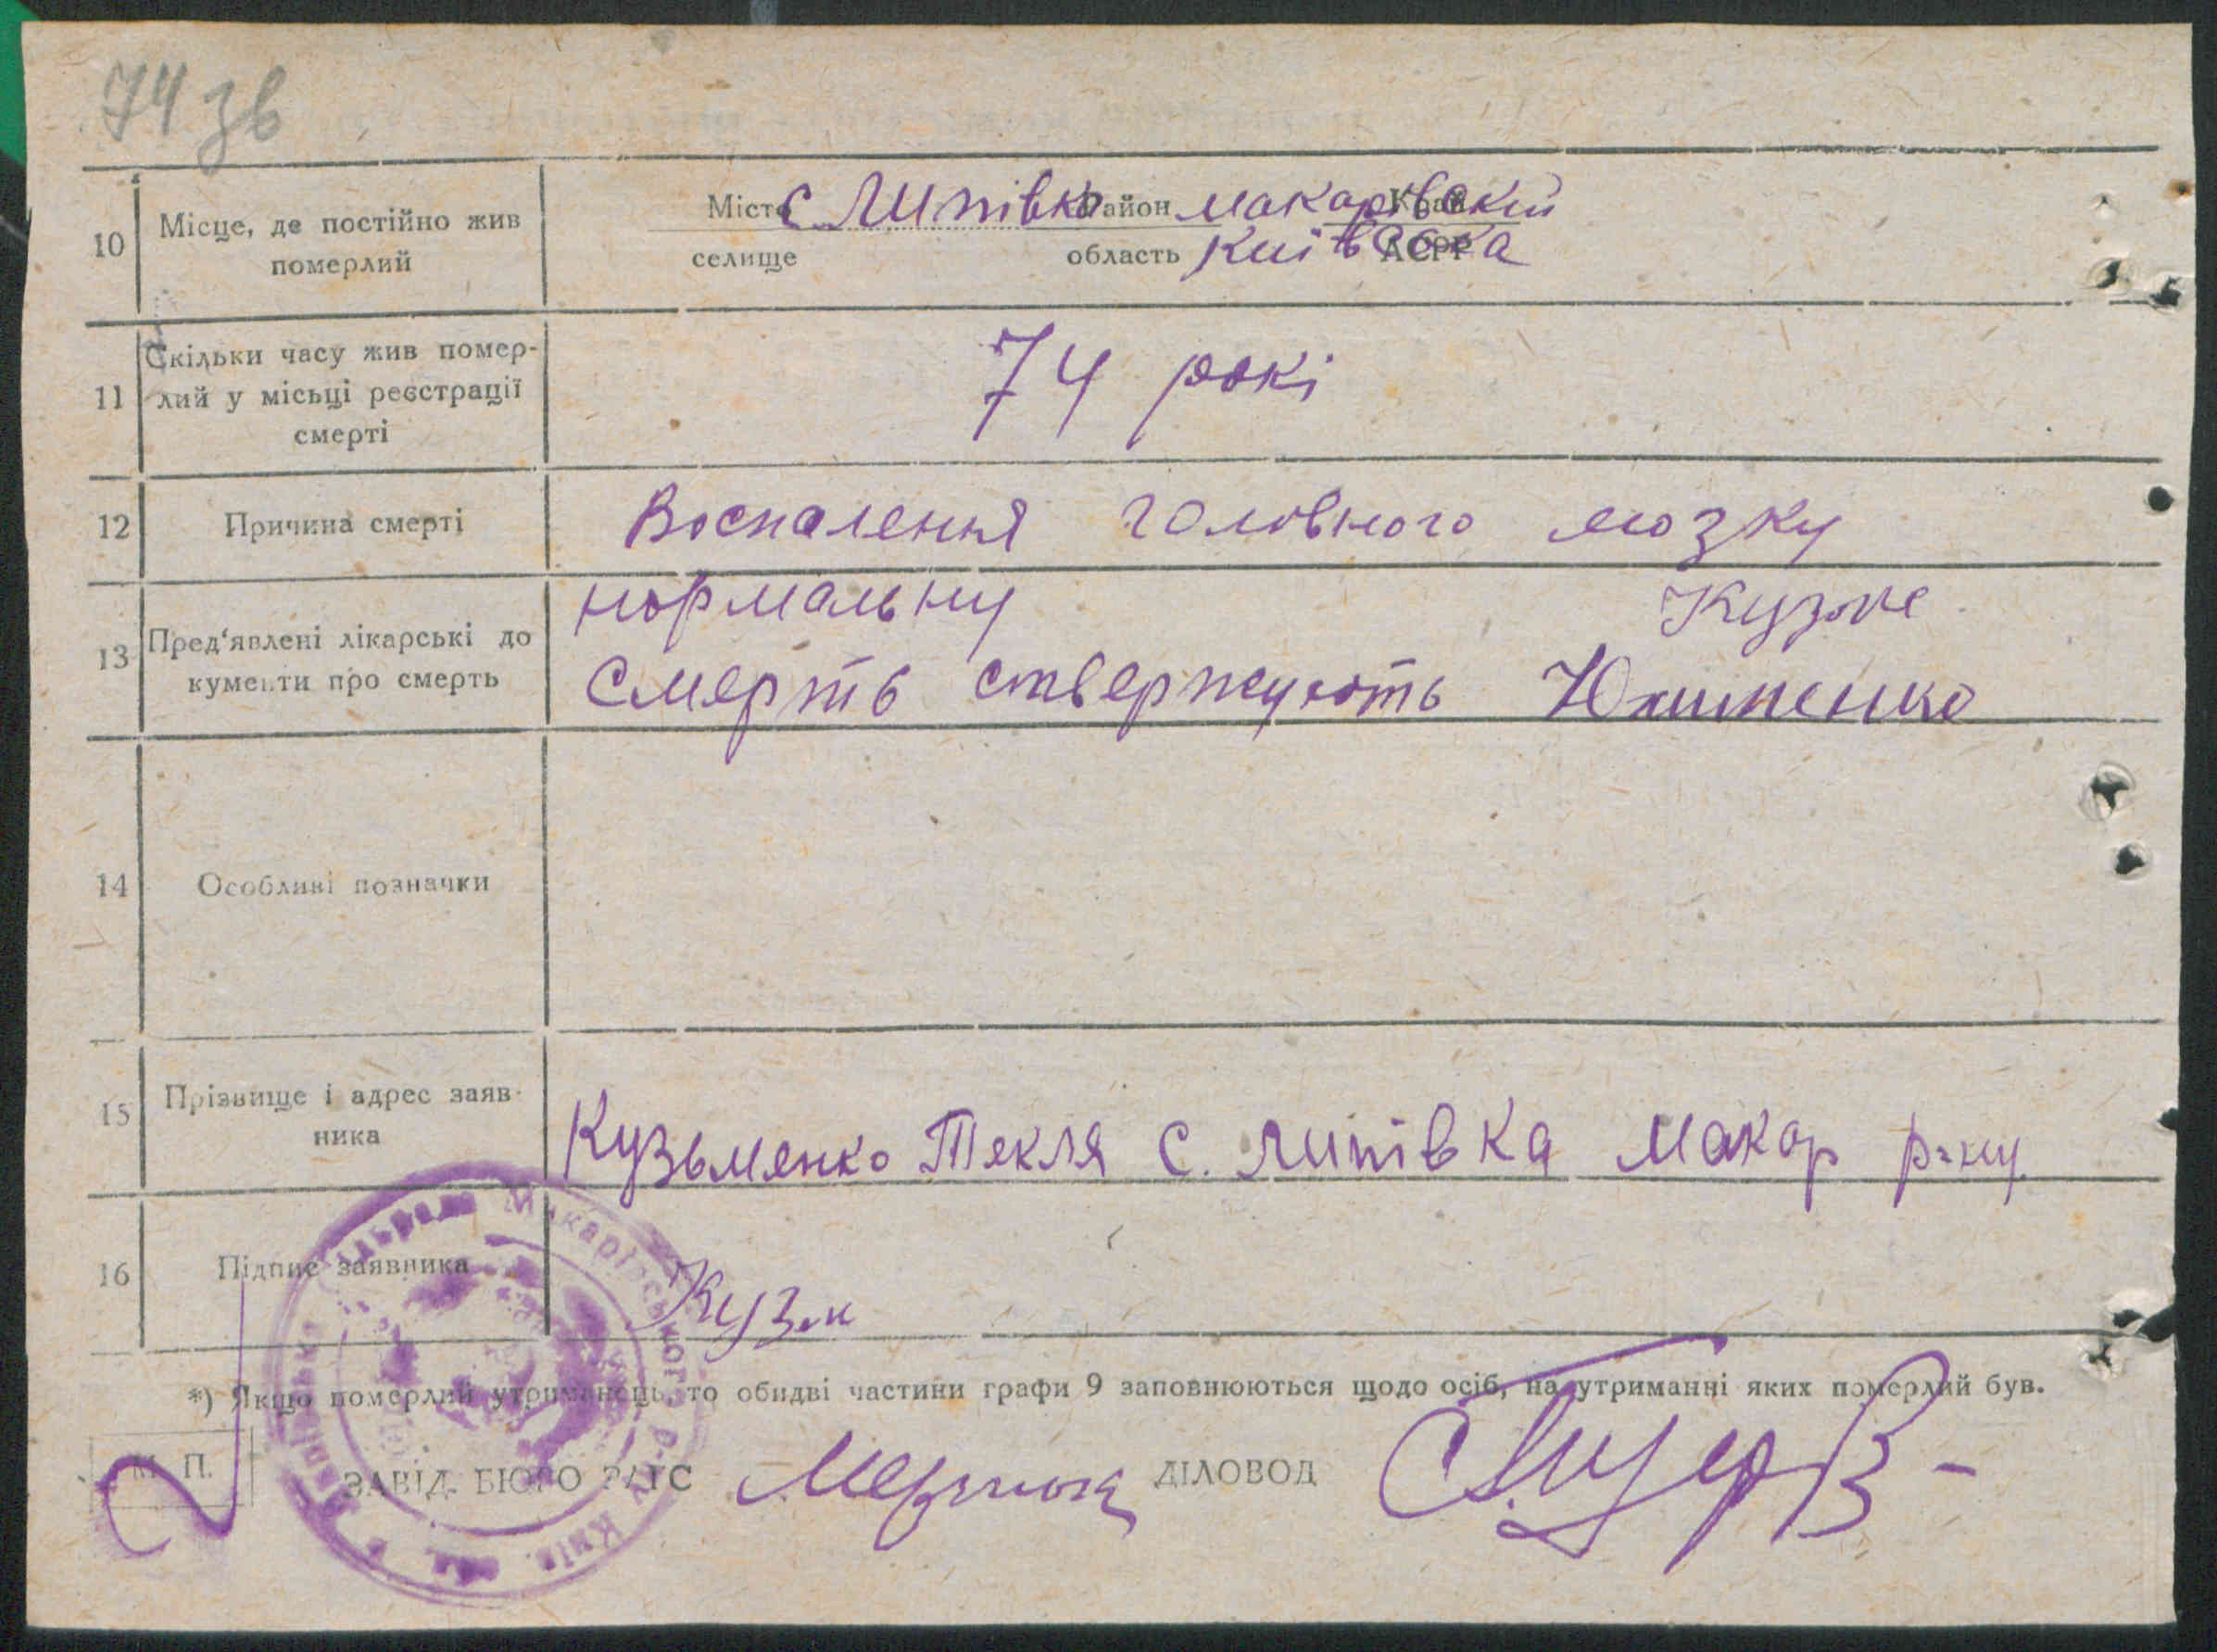 74 зв
10 Місце, де постійно жив померлий
Місто с Липівка Район макарівский Край
селище область київска АСРР
11 Скільки часу жив помер-
лий у місьці реєстрації
смерті
74 рокі
12 Причина смерті Воспалення головного мозку
13 Пред'явлені лікарські до
кументи про смерть
нормальну Кузме
Смерть ствержують Юхименко
14 Особливі позначки
15 Прізвище і адрес заяв-
ника
Кузьменко Текля с. липівка Макар р-ну
16 Підпис заявника Кузм
*) Якщо померлий утриманець, то обидві частини графи 9 заповнюються щодо осіб, на утриманні яких померлий був.
М. П.
ЗАВІД. БЮРО РАГС ДІЛОВОД
Макарівського р-ну Київ